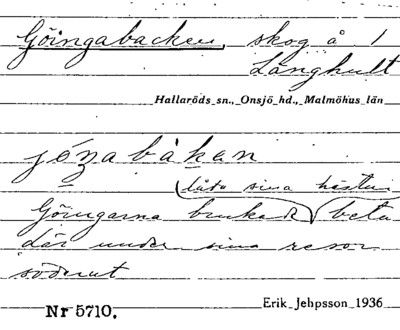 Göingabacken, skog å 1
Långhult
Hallaröds sn., Onsjö hd., Malmöhus län
jöṉabàḵan
låta sina hästar
Göingarna brukade beta
där under sina resor
söderut
Nr 5710.
Erik Jehpsson 1936